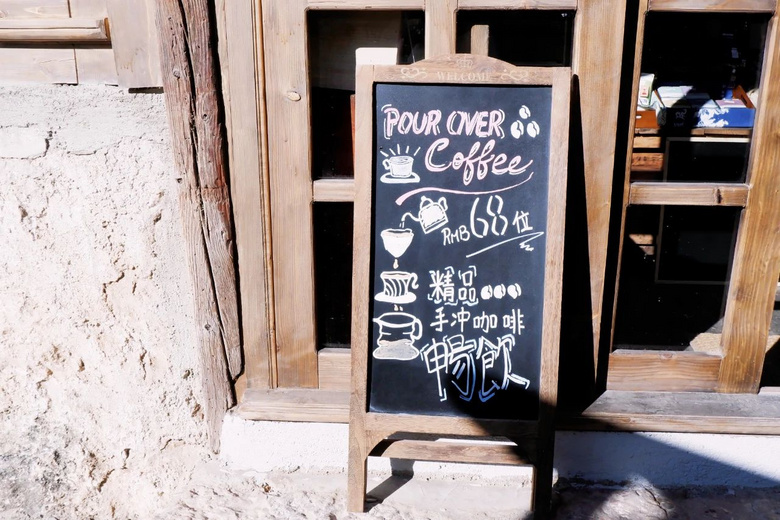 WELCOME
POUR OVER
Coffee
RMB 68 位
精品
手冲咖啡
暢飲